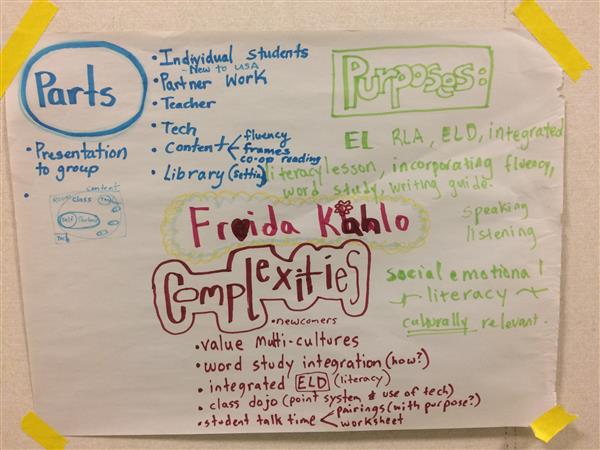 Parts
• Individual Students
- New to USA
• Partner Work
• Teacher
• Tech
• Content
fluency
frames
co-op reading
• Library (Setting)
• Presentation
to group
•
content
class
Self
Partner
Tech
Purposes:
EL RLA, ELD, integrated
literacy lesson, incorporating fluency,
word study, writing guide.
speaking
listening
social emotional
literacy
culturally relevant.
Froida Kahlo
Complexities
• newcomers
• value multi-cultures
• word study integration (how?)
• integrated ELD (literacy)
• class dojo (point system & use of tech)
• student talk time
pairings (with purpose?)
worksheet